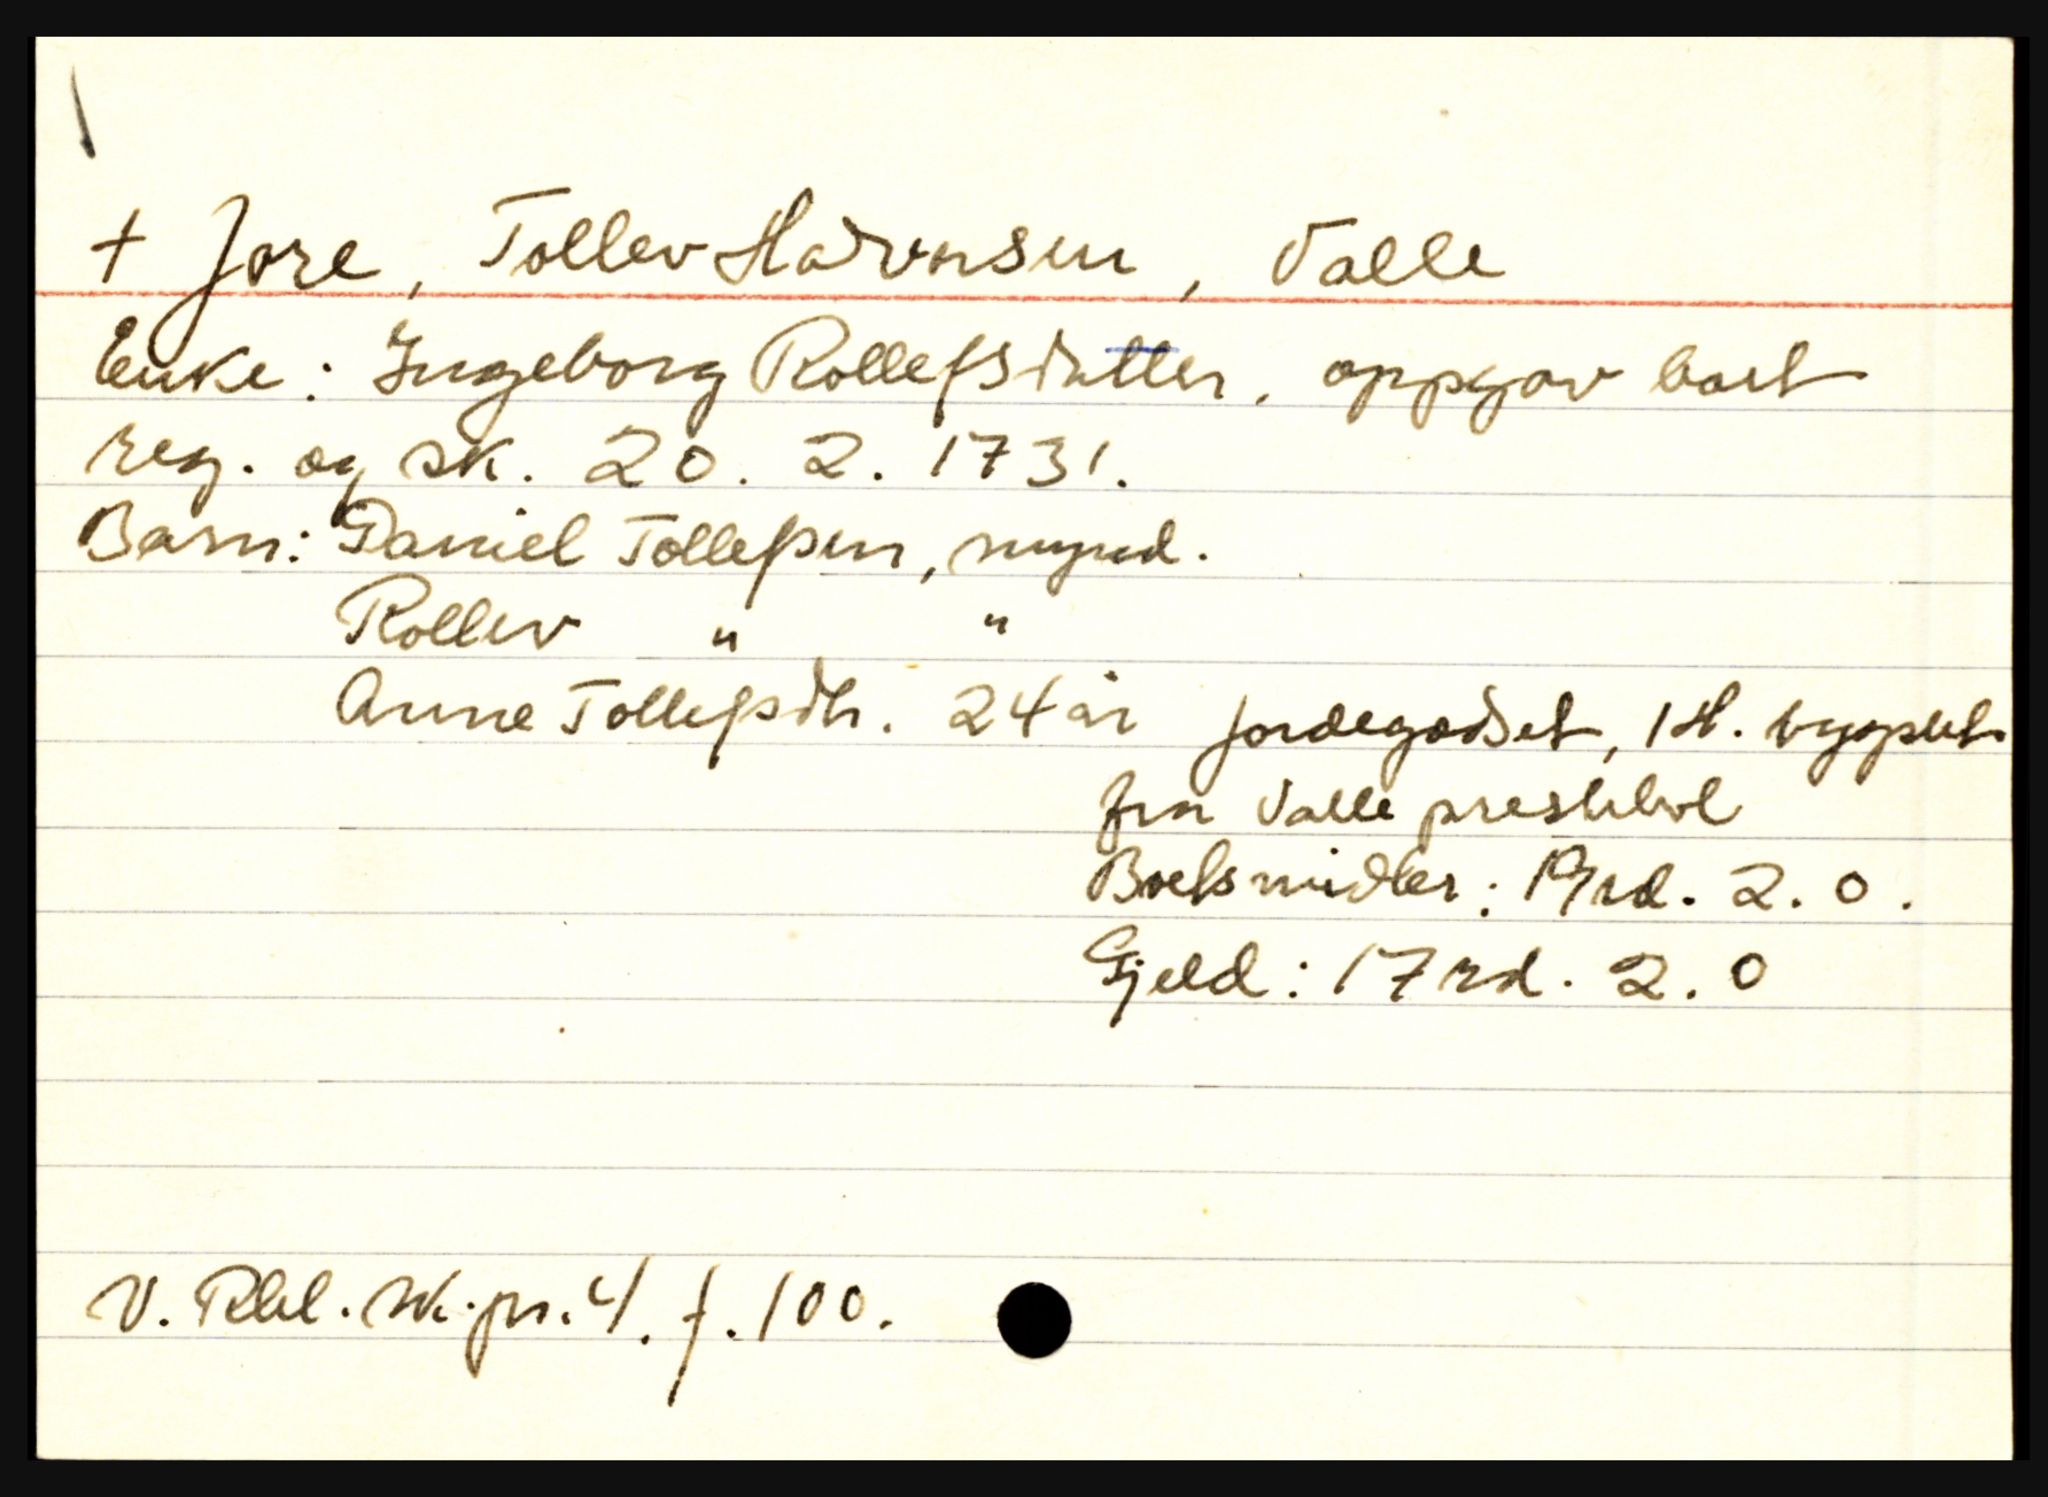 + Jore, Tollev Hadvorsen, Valle
Enke: Ingeborg Rollefsdatter. oppgav boet
reg. og sk. 20. 2. 1731.
Barn: Daniel Tollefsen, mynd.
Rollev " "
Anne Tollefsdtr. 24 år
Jordegodset, 1 H. bygslet
fra Valle prestebol
Boets midler: 19 rd. 2. 0.
Gjeld: 17 rd. 2. 0
V. Rbl. sk. pr. 4. f. 100.